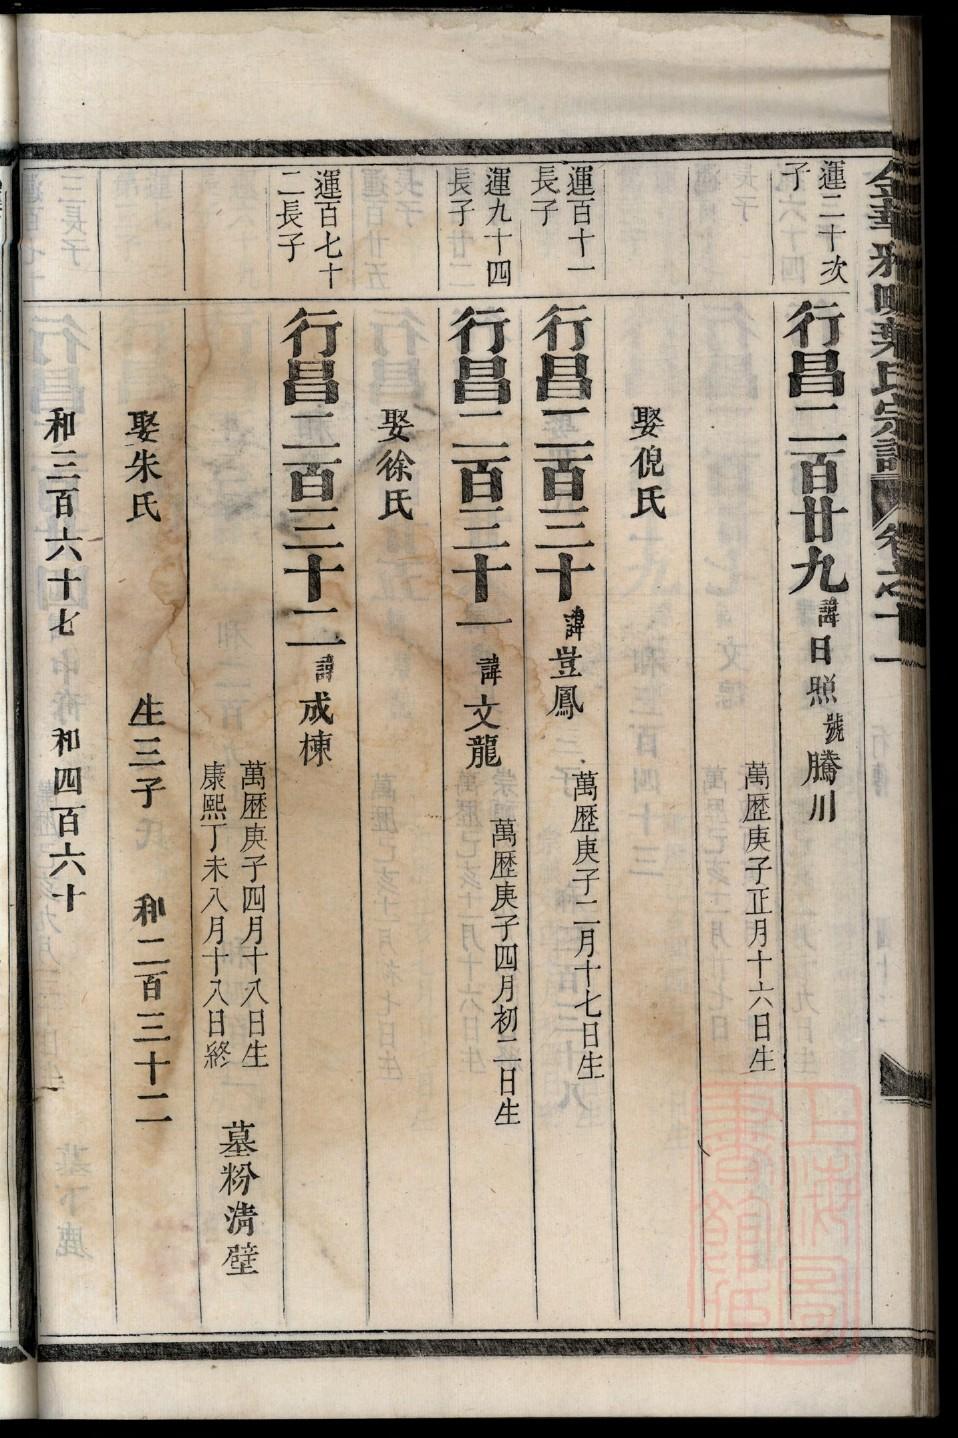 金華雅畈葉氏宗譜 卷之十一
運二十次子
行昌二百廿九 諱日照 號騰川
萬歷庚子正月十六日生
娶倪氏
運百十一長子
行昌二百三十 諱豈鳳 萬歷庚子二月十七日生
運九十四長子
行昌二百三十一 諱文龍 萬歷庚子四月初二日生
娶徐氏
運百七十二長子
行昌二百三十二 諱成棟
萬歷庚子四月十八日生
康熙丁未八月十八日終
墓粉清壁
娶朱氏 生三子 和二百三十二
和三百六十七 和四百六十
上海圖書館藏